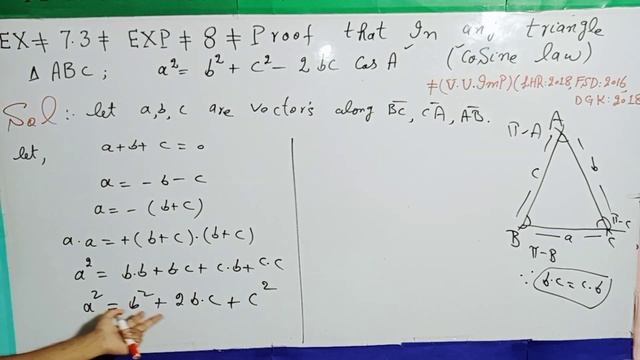 EX# 7.3 # EXP # 8 # Proof that In any triangle
Δ ABC ; a² = b² + c² - 2bc Cos A (Cosine law)
#(V.V.Imp)(LHR:2018, FSD:2016,
DGK:2018
Sol:- let a, b, c are vectors along B̄C̄, C̄Ā, ĀB̄.
let,
a + b + c = 0
a = - b - c
a = - (b + c)
a . a = + (b + c) . (b + c)
a² = b.b + b.c + c.b + c.c
a² = b² + 2b.c + c²
A
π-A
c
b
B
a
C
π-C
π-B
∵ b.c = c.b